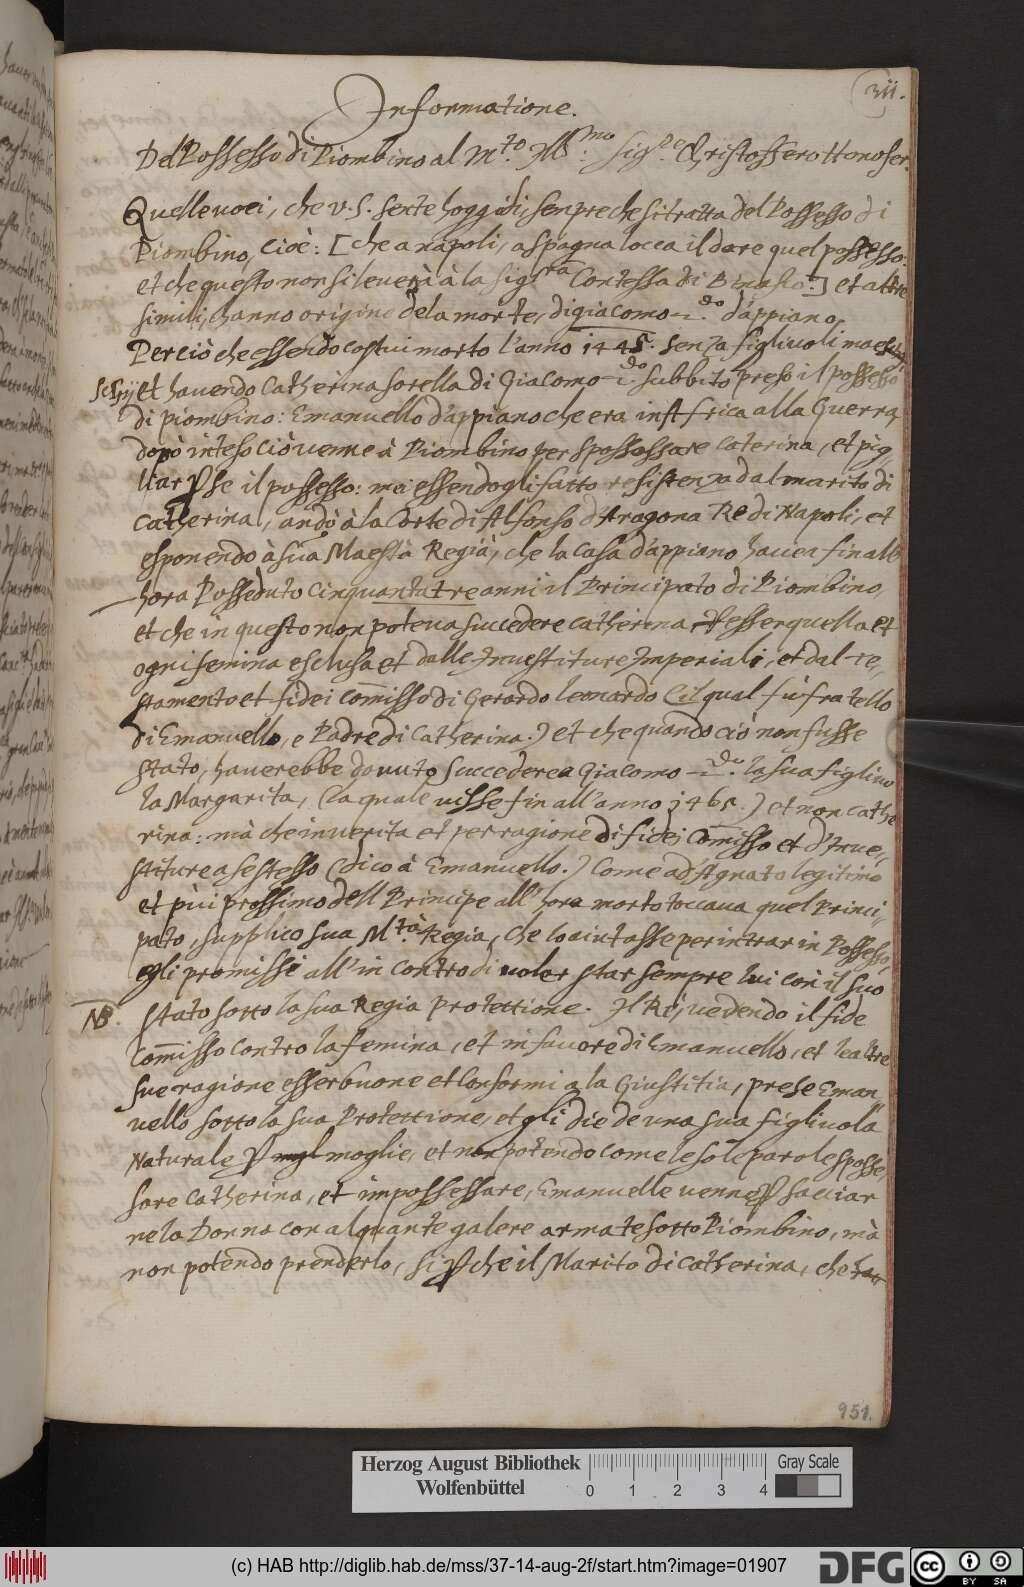 311.
Informatione.
Del Possesso di Piombino al M.to Ill.mo Sig.re Christoffero Honofer.
Quelle voci, che V.S. sente hoggidì, senpre che si tratta del Possesso di
Piombino, cioè: [che a napoli, a spagna tocca il dare quel possesso:
et che questo non si leverà à la Sig.ra Contessa di Binasco.] et altre
simili, hanno origine dela morte, di giacomo 2.do d'appiano.
Perciò che essendo costui morto l'anno 1445. senza figliuoli maschi,
et havendo Catherina sorella di Giacomo 2.do subbito preso il possesso
di piombino: Emanuello d'appiano che era inst frica alla Guerra,
dopò inteso ciò venne à Piombino per spossessare Caterina, et pig,
liar p se il possesso: ma essendogli fatto resistenza dal marito di
Catherina, andò à la Corte di Alfonso d'Aragona Re di Napoli, et
esponendo à sua Maestà Regia, che la Casa d'appiano havea fin all
hora Posseduto Cinquantatre anni il Principato di Piombino,
et che in questo non poteva succedere Catherina p esser quella et
ogni femina esclusa et dalle Investiture Imperiali, et dal te,
stamento et fidei Com̄isso di Gerardo leonardo (il qual fù fratello
di Emanuello, e Padre di Catherina.) et che quando ciò non fusse
stato, haverebbe dovuto succedere a Giacomo 2.do la sua figliuo
la Margarita, (la quale visse fin all'anno 1465.) et non Cathe
rina: mà che in verita et per ragione di fidei Com̄isso et d'Inve,
stiture a se stesso (dico à Emanuello.) Come ad Agnato legitimo
et più prossimo dell Principe all' hora morto toccava quel Princi,
pato, supplico sua M.tà Regia, che lo aiutasse per intrar in Possesso,
egli promisse all' in contro di voler star sempre lui con il suo
NB.
stato sotto la sua Regia protettione. Il Rè, vedendo il fide
Com̄isso contro la femina, et in favore di Emanuello, et le altre
sue ragione esser buone et Conformi a la Giustitia, prese Eman
uello sotto la sua Protettione, et gli diede una sua figliuola
Naturale p moglie, et non potendo come le sole parole sposse,
sare Catherina, et impossessare, Emanuelle venne p sacciar
ne la Donna con alquante galere armate sotto Piombino, mà
non potendo prenderlo, si p che il Marito di Catherina, che
951.
Herzog August Bibliothek
Wolfenbüttel
0 1 2 3 4
Gray Scale
(c) HAB http://diglib.hab.de/mss/37-14-aug-2f/start.htm?image=01907
DFG
cc BY SA